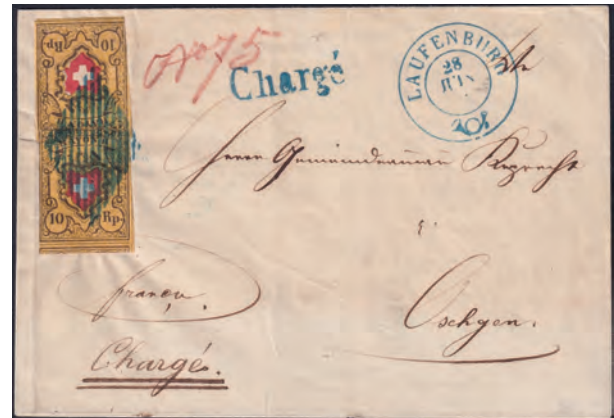 10 Rp.
10 Rp.
No 75
Chargé
LAUFENBURG
28
JUIN
Herrn Gemeindeamman Ruprecht
Oschgen.
franco.
Chargé.